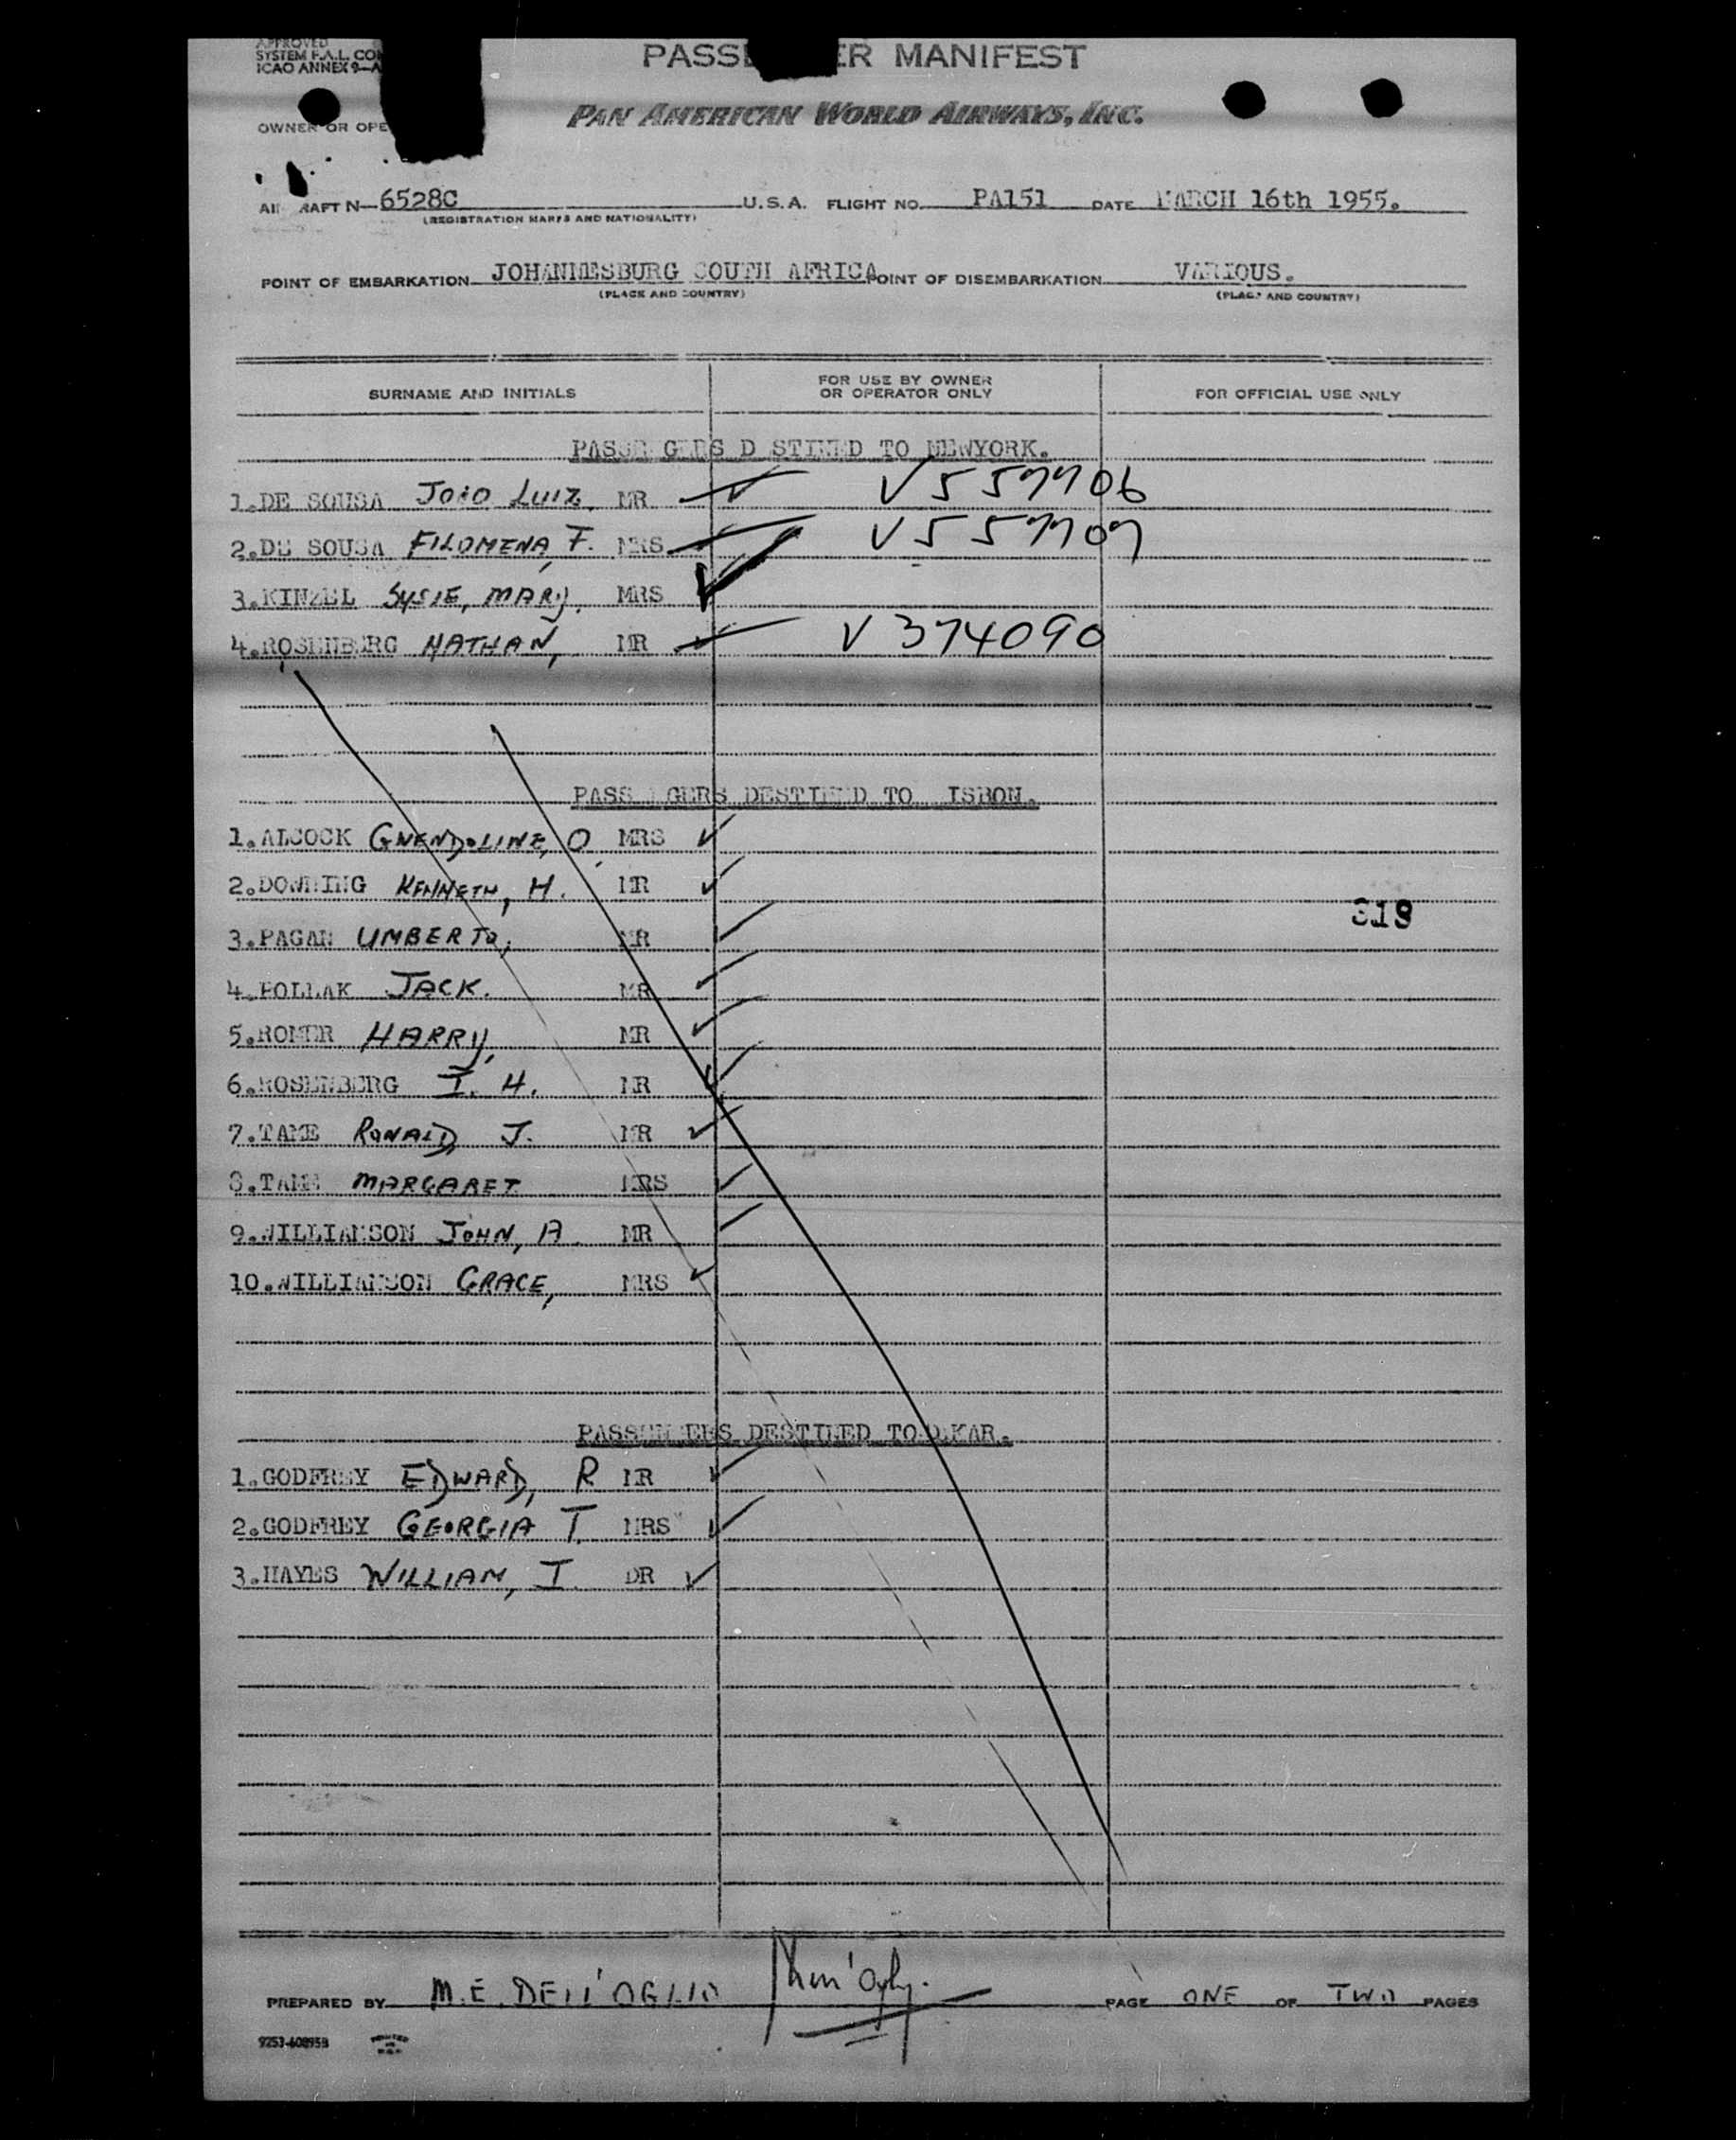 APPROVED
SYSTEM F.A.L. CO
ICAO ANNEX 9-A
PASSE ER MANIFEST
PAN AMERICAN WORLD AIRWAYS, INC.
OWNER OR OPE
AI RAFT N- 6528C U.S.A. FLIGHT NO. PA151 DATE MARCH 16th 1955.
(REGISTRATION MARKS AND NATIONALITY)
POINT OF EMBARKATION JOHANNESBURG SOUTH AFRICA POINT OF DISEMBARKATION VARIOUS.
(PLACE AND COUNTRY) (PLACE AND COUNTRY)
SURNAME AND INITIALS FOR USE BY OWNER OR OPERATOR ONLY FOR OFFICIAL USE ONLY
PASSE GERS D STINED TO NEWYORK.
1.DE SOUSA JOAO LUIZ, MR V557706
2.DE SOUSA FILOMENA, F. MRS V557707
3.KINZEL SYSIE, MARY. MRS
4.ROSENBERG NATHAN, MR V374090
PASS GERS DESTINED TO ISBON.
1.ALCOCK GWENDOLINE, O. MRS
2.DOWNING KENNETH, H. MR
3.PAGAN UMBERTO, MR
319
4.POLLAK JACK. MR
5.ROMER HARRY, MR
6.ROSENBERG I. H. MR
7.TAME RONALD J. MR
8.TAME MARGARET MRS
9.WILLIAMSON JOHN, A. MR
10.WILLIAMSON GRACE, MRS
PASSEN ERS DESTINED TO D KAR.
1.GODFREY EDWARD, R MR
2.GODFREY GEORGIA T. MRS
3.HAYES WILLIAM, I. DR
PREPARED BY M.E. DELL'OGLIO PAGE ONE OF TWO PAGES
9253-608958